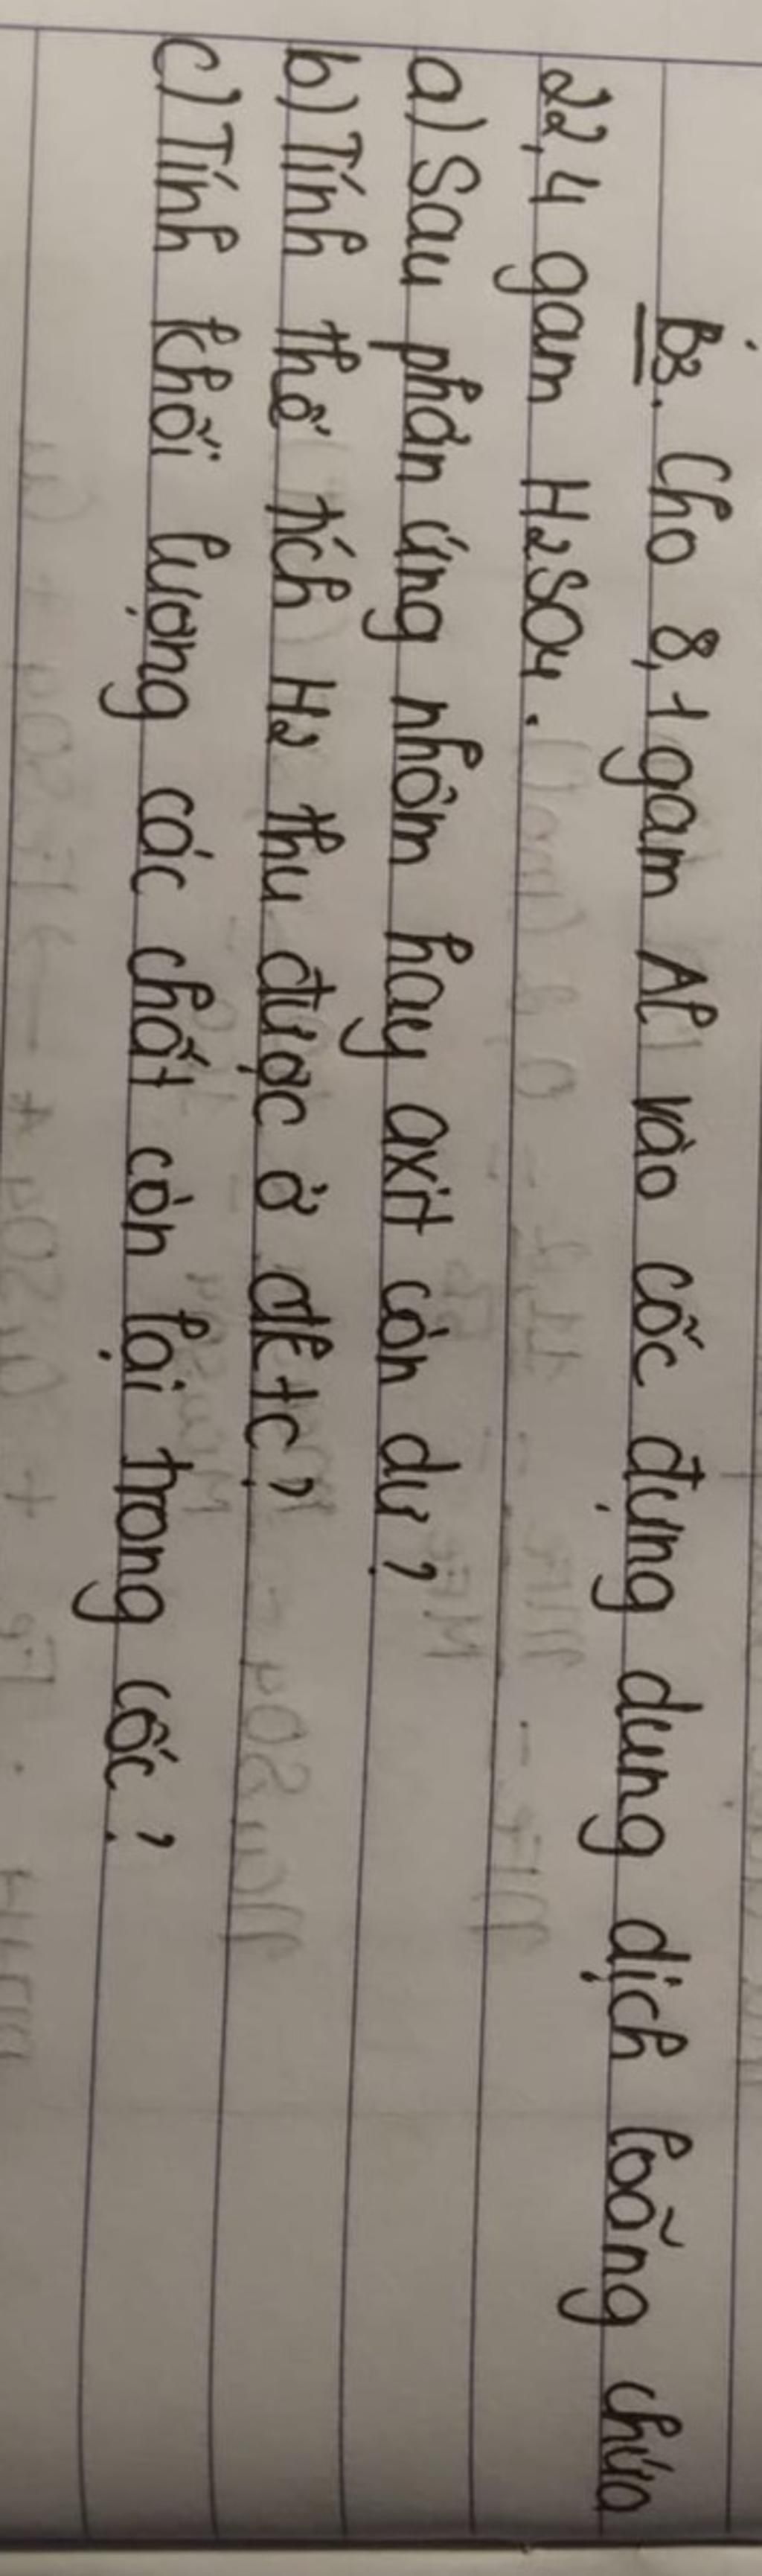 B3. Cho 8,1 gam Al vào cốc đựng dung dịch loãng chứa
22,4 gam H2SO4.
a) Sau phản ứng nhôm hay axit còn dư?
b) Tính thể tích H2 thu được ở đktc?
c) Tính khối lượng các chất còn lại trong cốc?